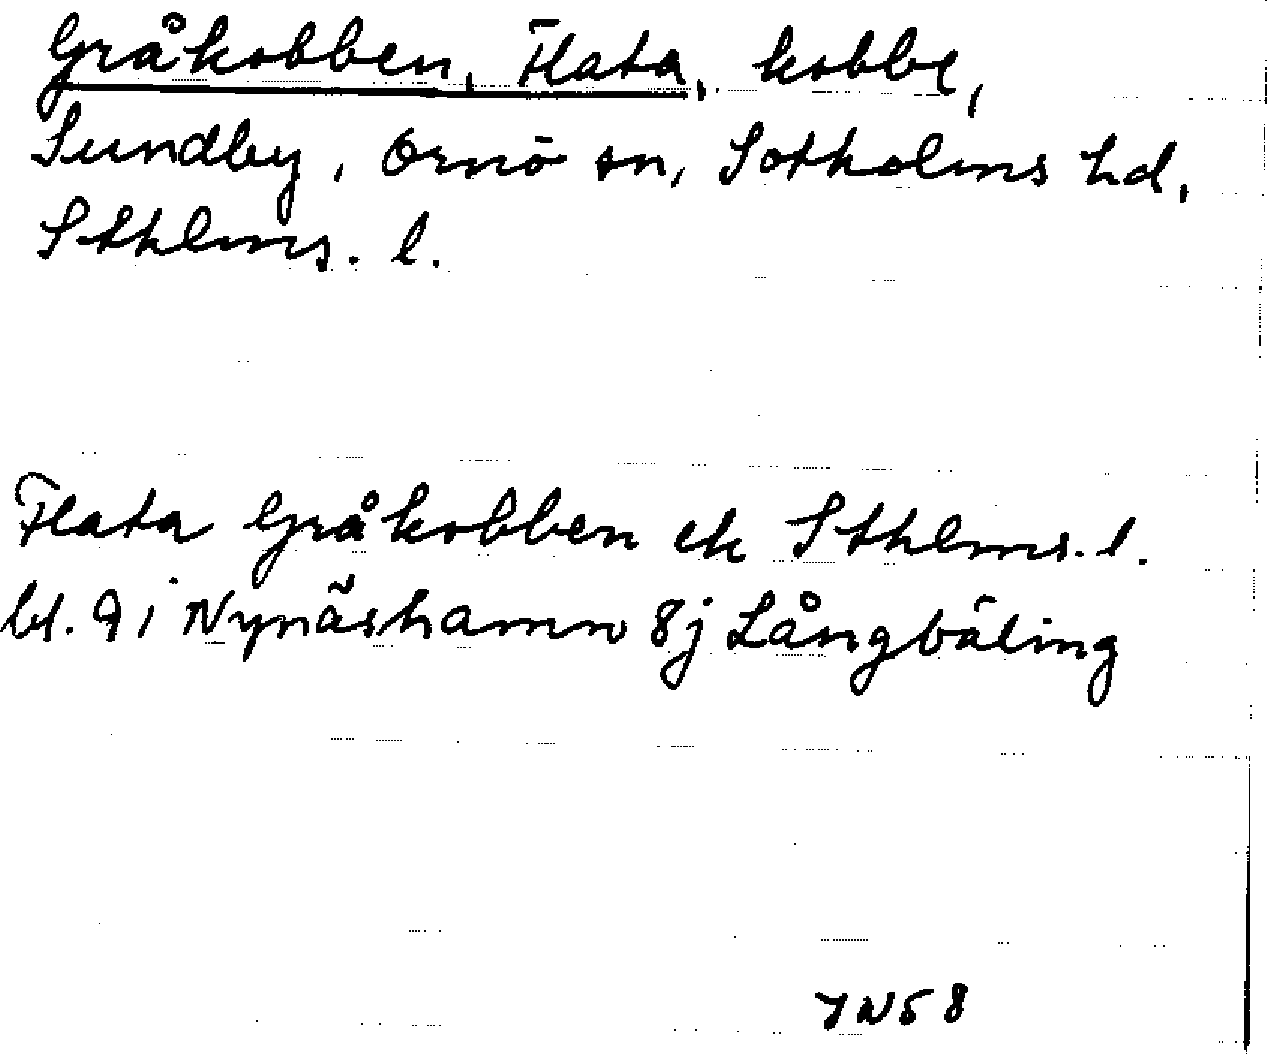 Gråkobben, Flata, kobbe,
Sundby, Ornö sn, Sotholms hd,
Sthlms. l.
Flata Gråkobben ek Sthlms. l.
bl. 91 Nynäshamn 8j Långbäling
JN58